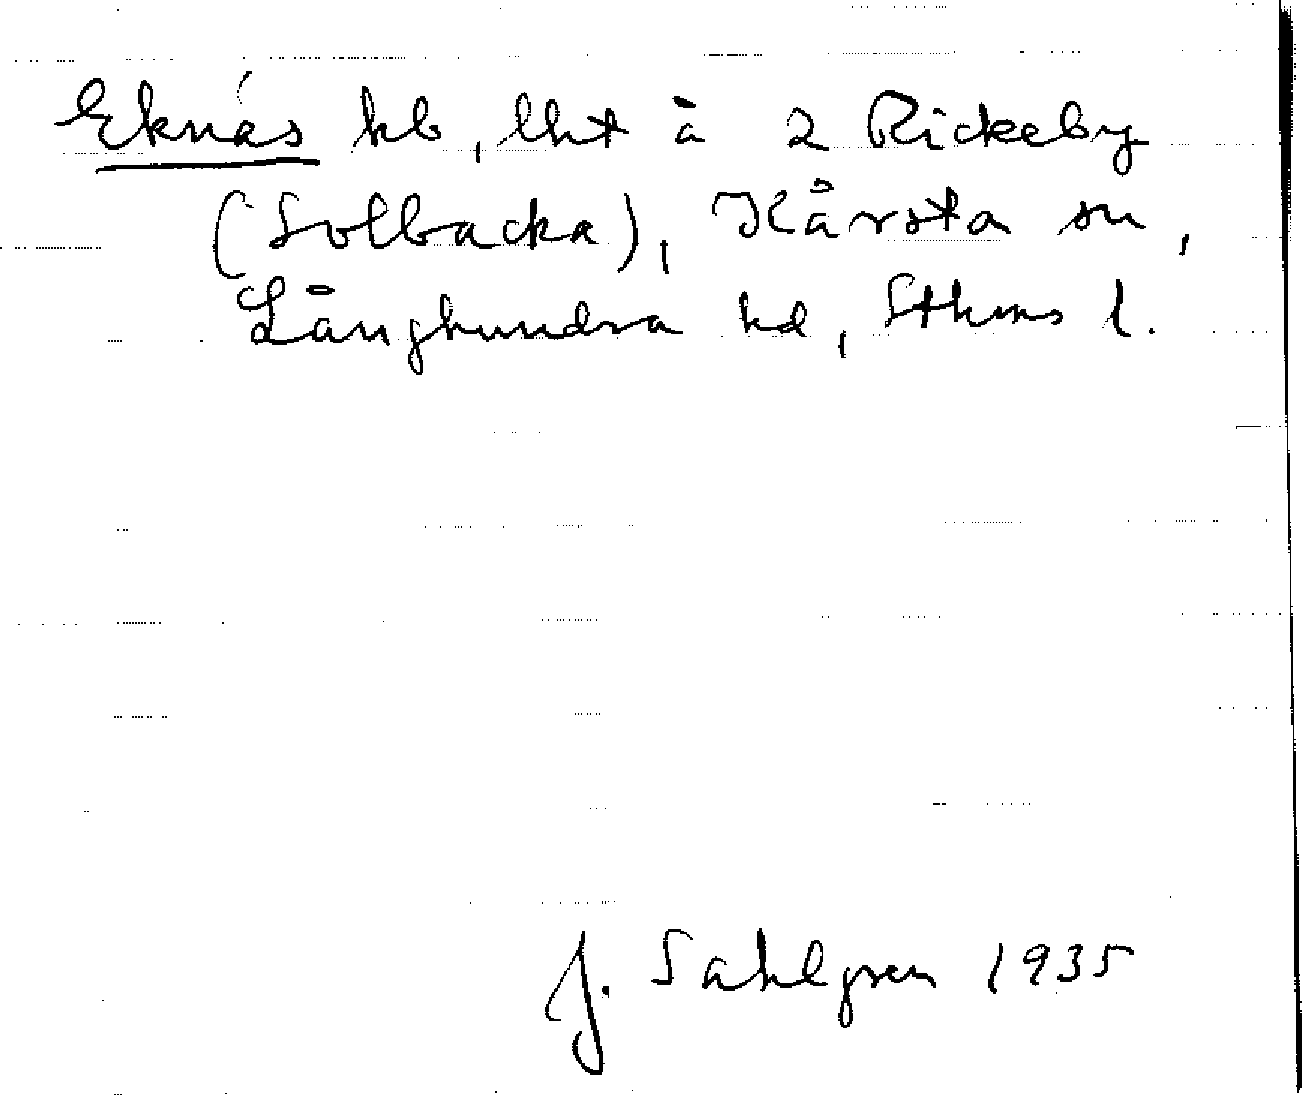 Eknäs hb, lht å 2 Rickeby
(Solbacka), Kårsta sn,
Långhundra hd, Sthms l.
J. Sahlgren 1935